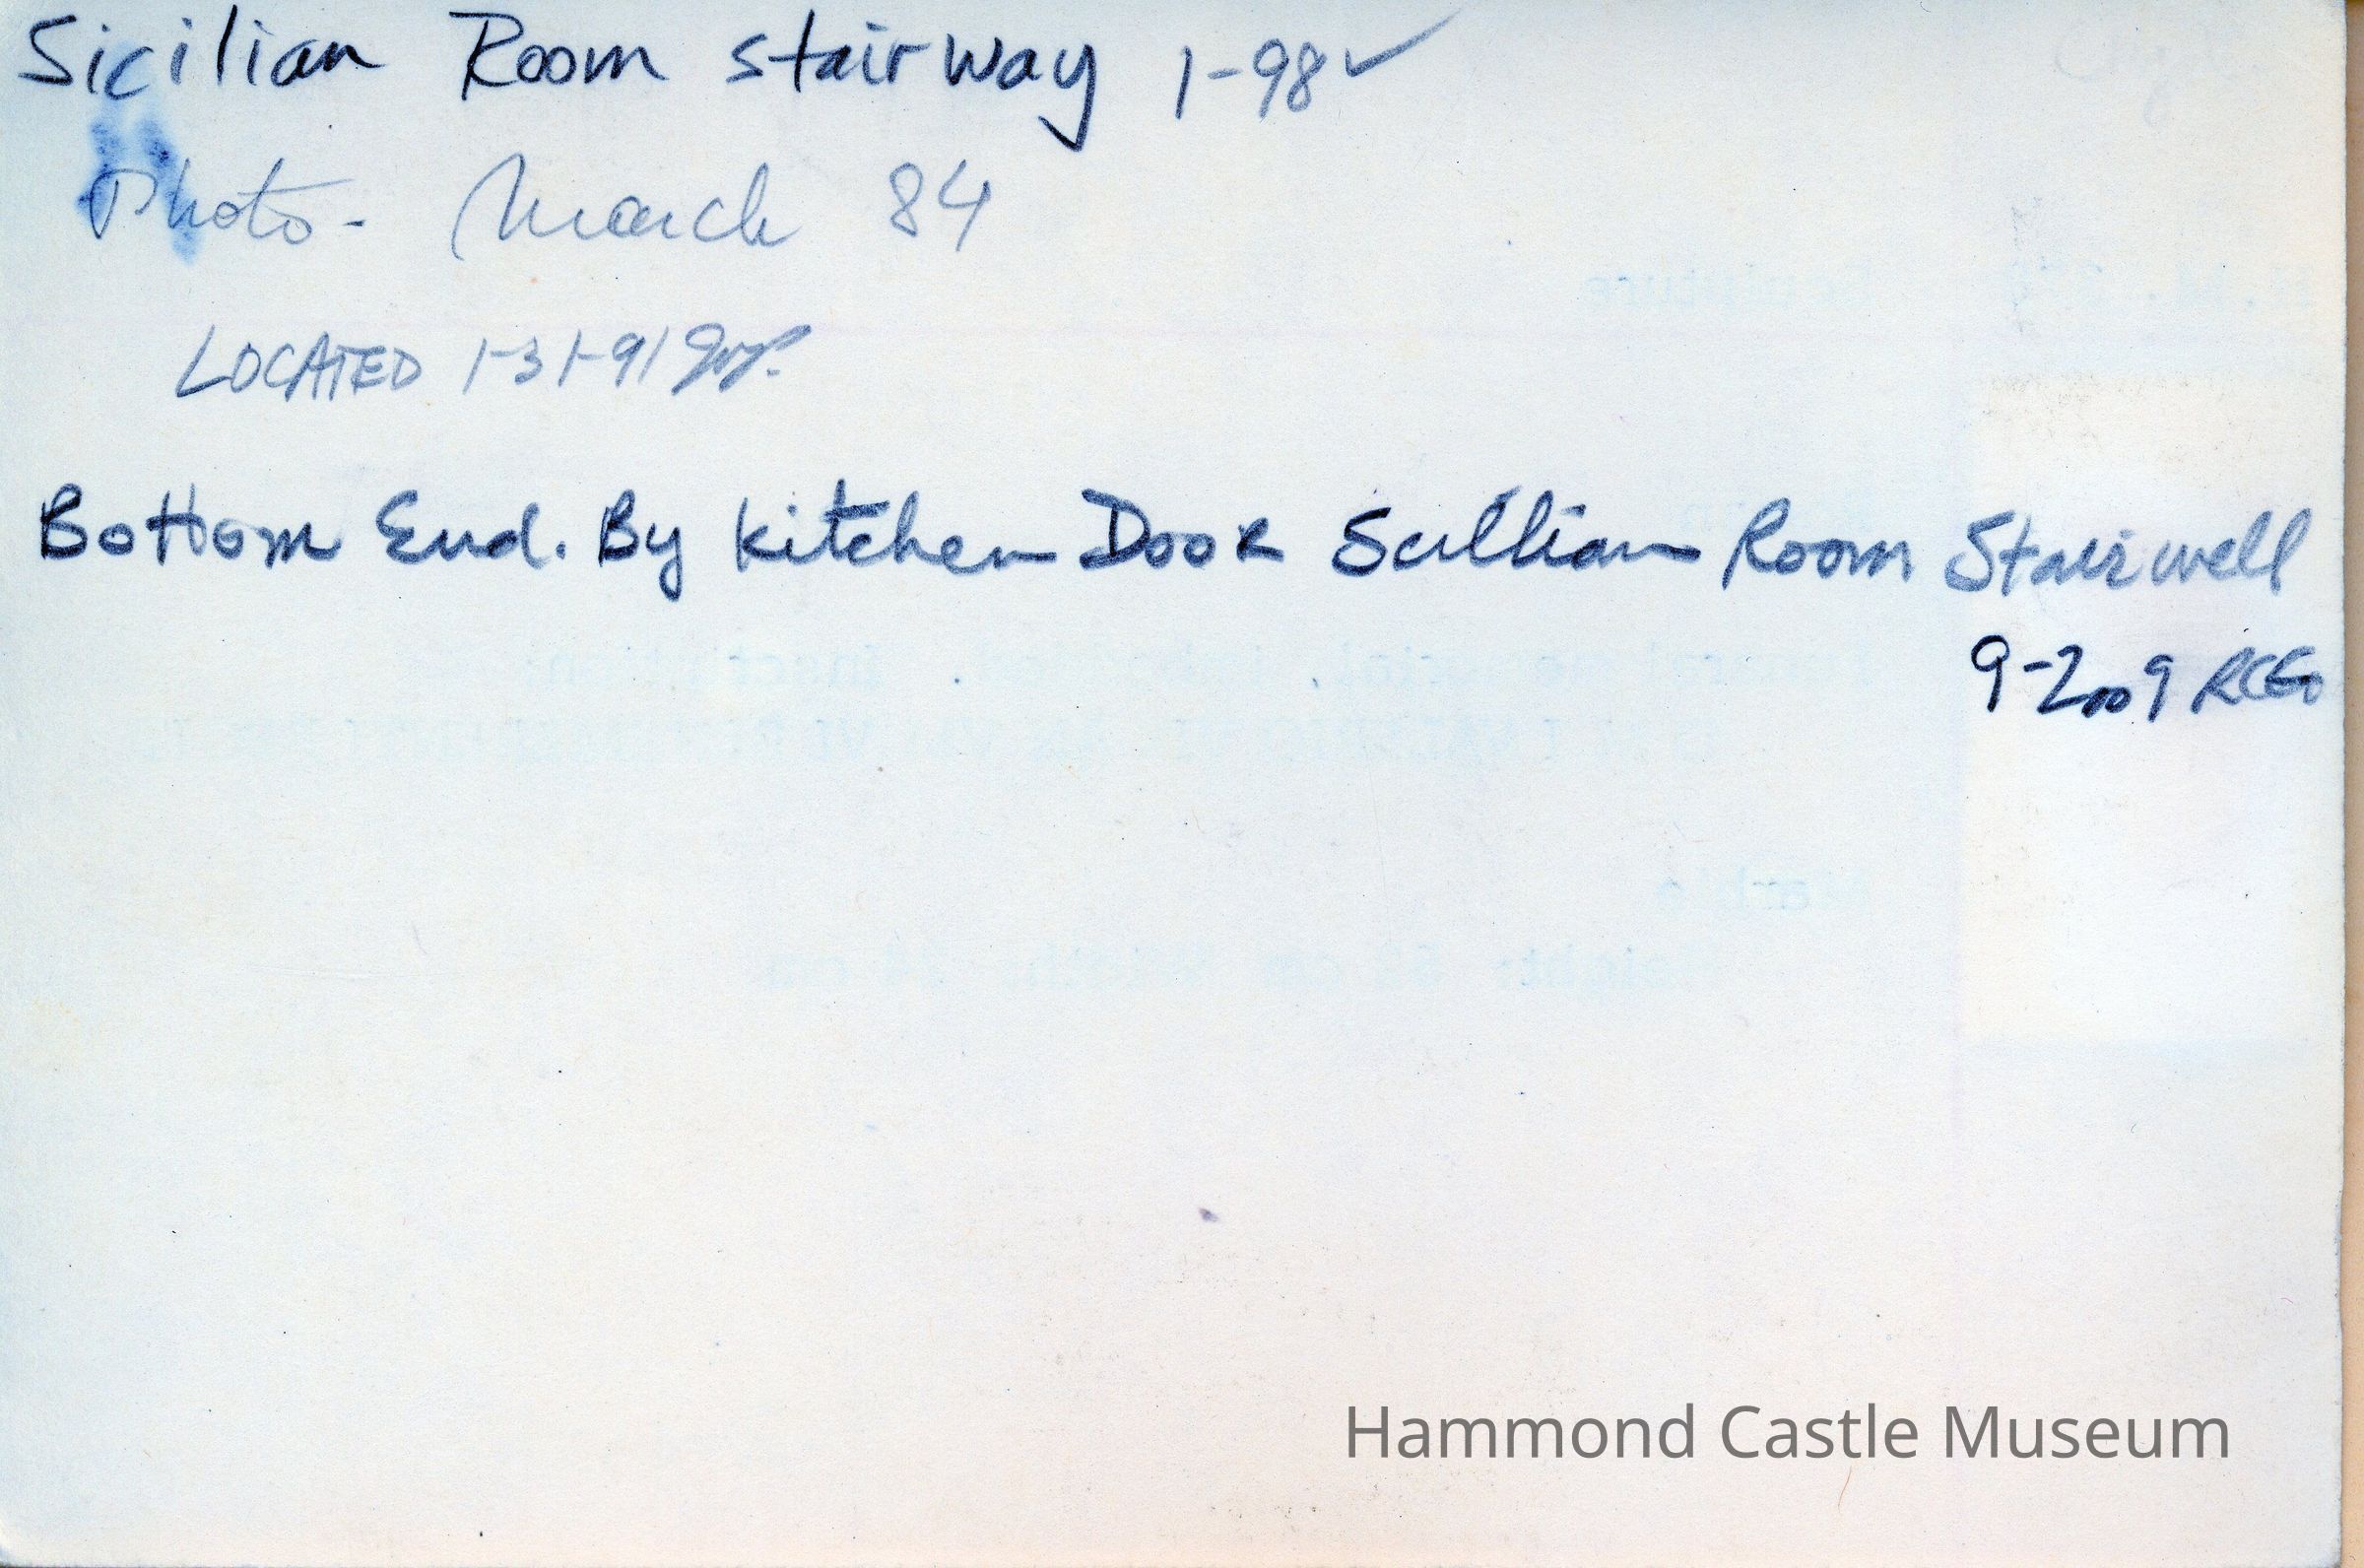 Sicilian Room stairway 1-98 ✓
Photo - March 84
LOCATED 1-31-91
Bottom End. By Kitchen Door Scillian Room Stairwell
9-2009
Hammond Castle Museum